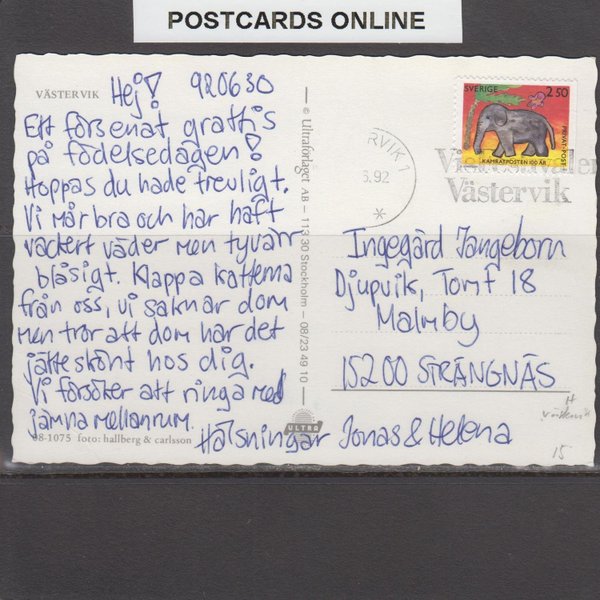 POSTCARDS ONLINE
VÄSTERVIK
Hej! 920630
Ett försenat grattis
på födelsedagen!
Hoppas du hade trevligt.
Vi mår bra och har haft
vackert väder men tyvärr
blåsigt. Klappa katterna
från oss, vi saknar dom
men tror att dom har det
jätteskönt hos dig.
Vi försöker att ringa med
jämna mellanrum.
Hälsningar Jonas & Helena
98-1075 foto: hallberg & carlsson
© Ultraförlaget AB – 113 30 Stockholm – 08/23 49 10
ULTRA
SVERIGE 2 50
PRIVATPOST
KAMRATPOSTEN 100 ÅR
RVIK 1
6.92
*
Västervik
Ingegärd Jangeborn
Djupvik, Tomt 18
Malmby
15200 STRÄNGNÄS
H
15